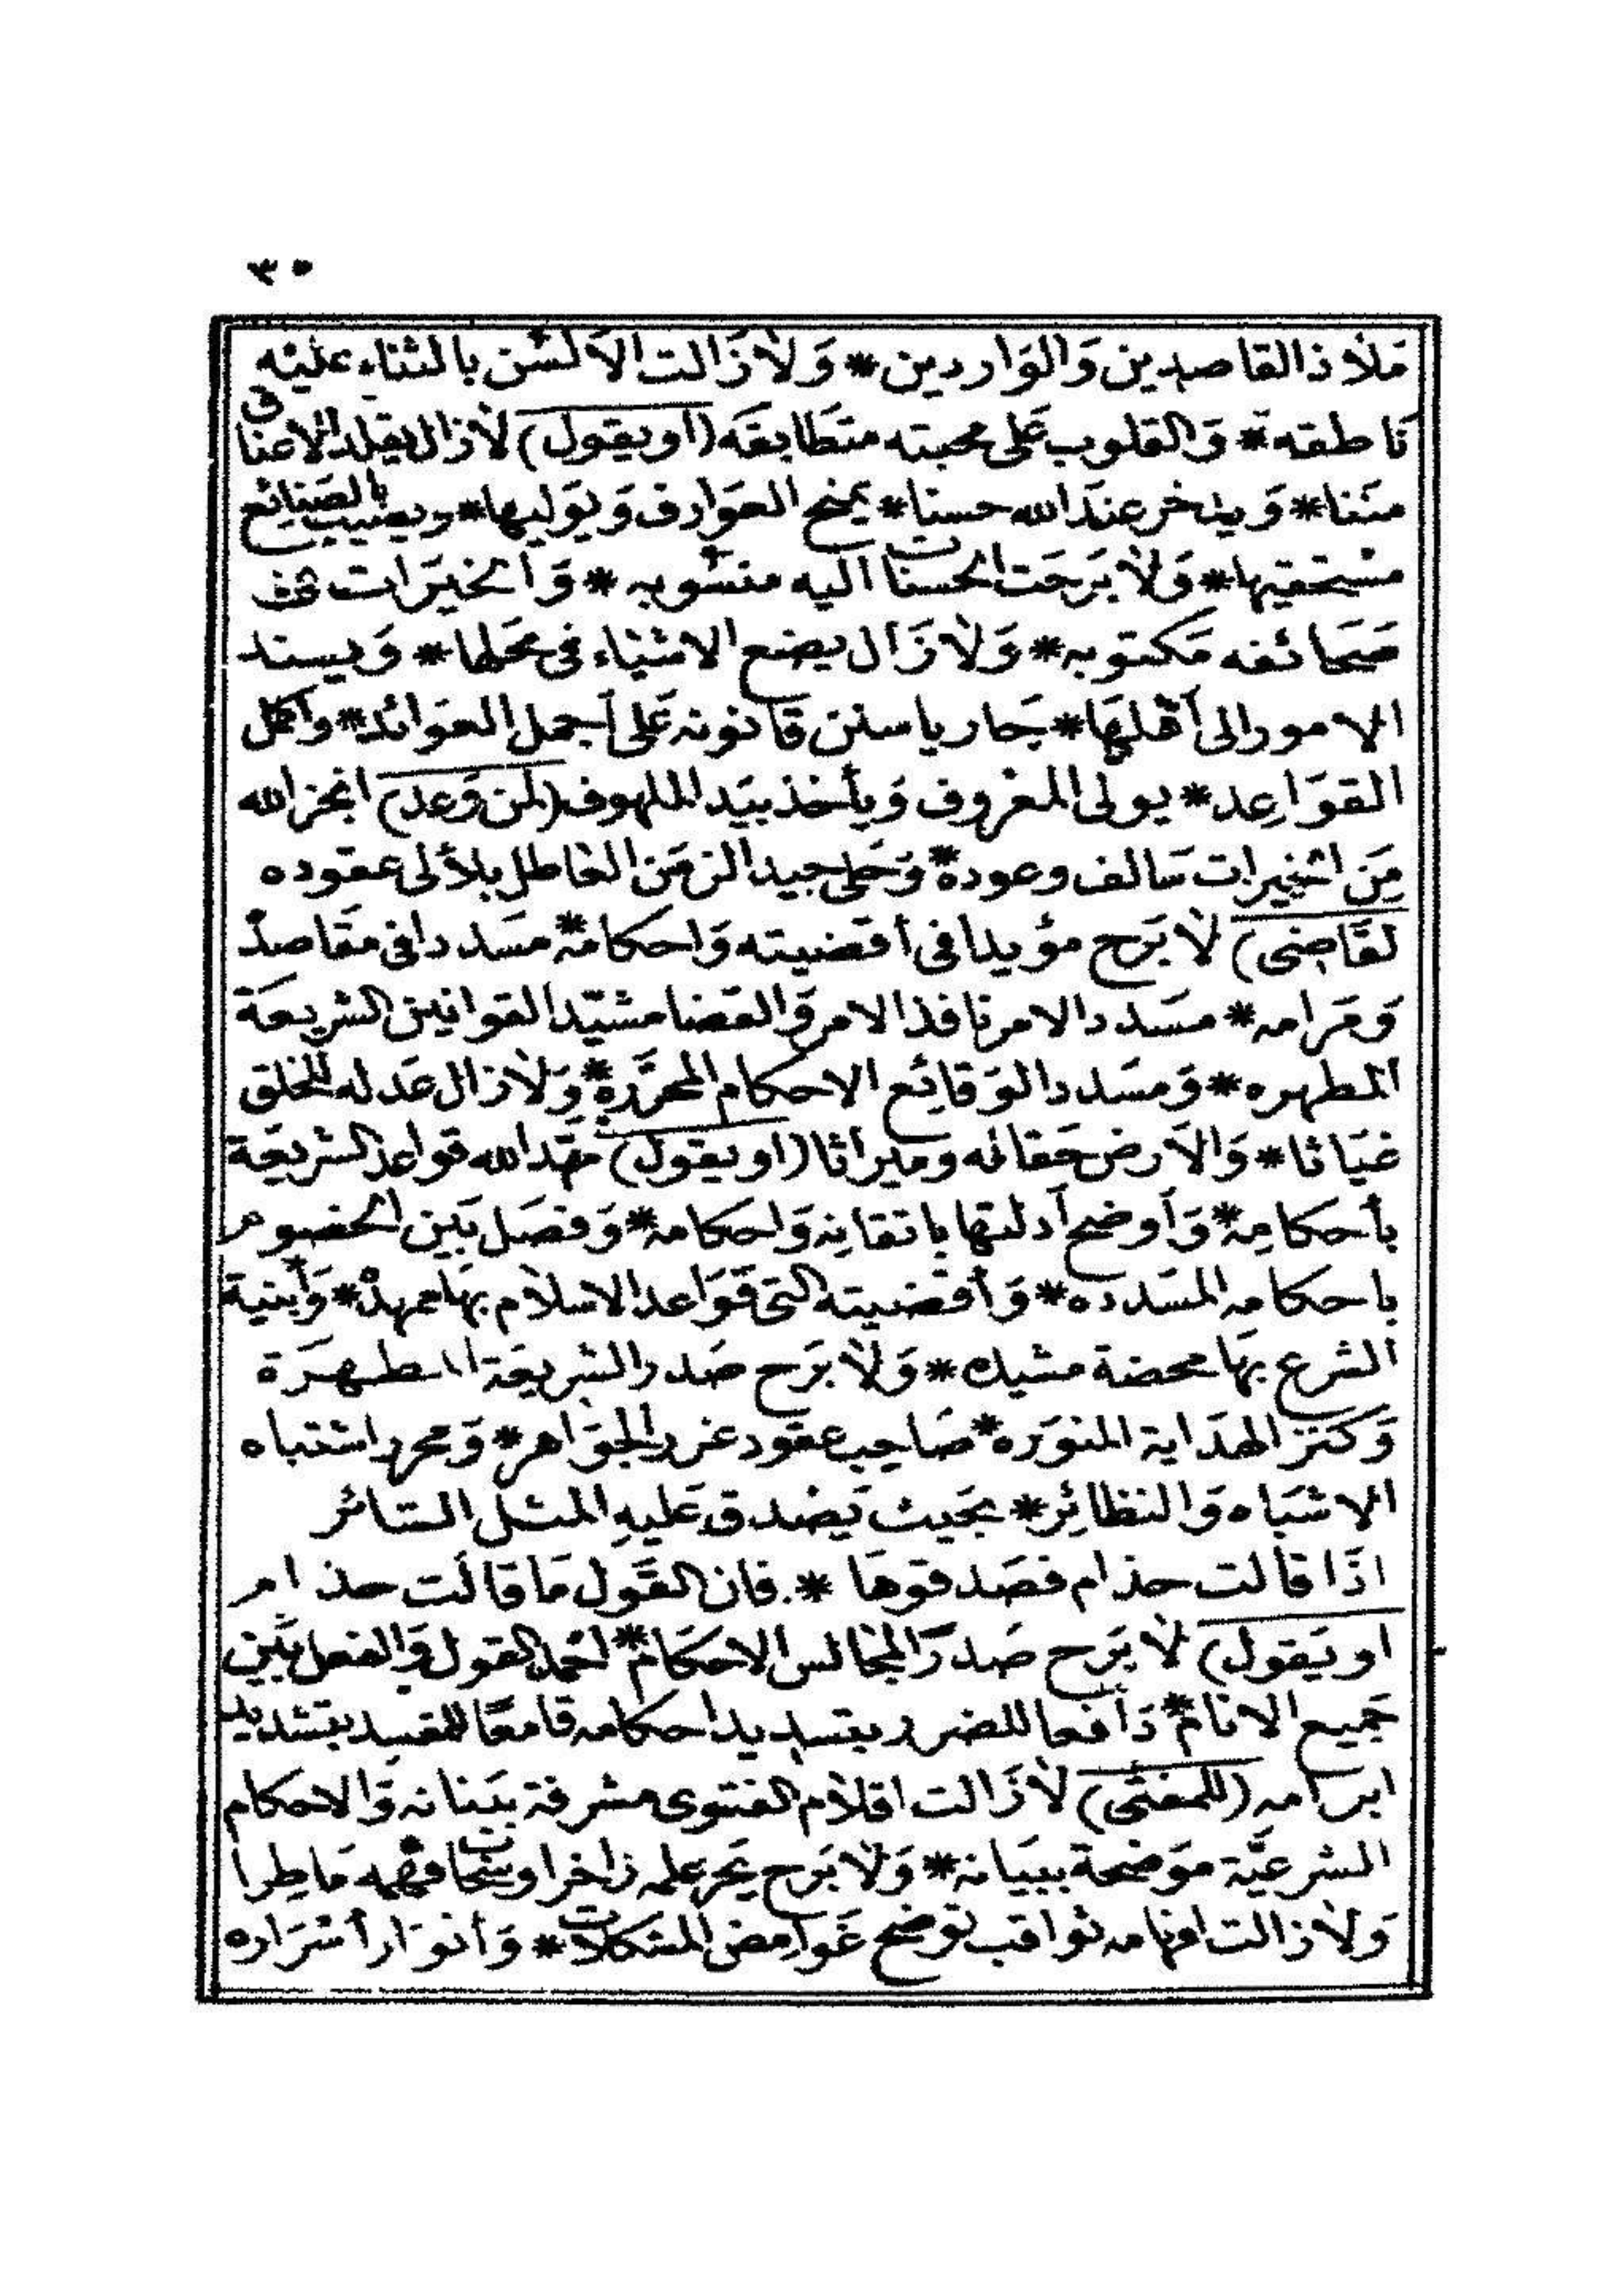 ٣٥
مَلاذ القاصدين وَالوَاردين * وَلاَزَالت الاَلسُن بالثناء عليْه
نَاطقه * وَالقلوب عَلى محبته متَطَابقَه (او يقول) لاَزال يقلد الاعناق
مننا * وَيدخر عندَ الله حسنا * يمنح العوَارف وَيوَليها * ويصيب بالصنَائع
مستحقيها * وَلاَ بَرحَت الحسنات اليه منسُوبه * وَالخيرَات في
صَحَائفه مَكتوبه * وَلاَزَال يضع الاشيَاء في محَلها * وَيسند
الامور الى أهلهَا * جَاريا سنن قَانونه عَلى أجمل العوَائد * وأكمل
القوَاعِد * يولى المعْروف وَيأخذ بيَد الملهوف (لمن وَعد) انجز الله
مِنَ الخيرات سَالف وعوده * وَحَلى جيد الزمَن العَاطل بلآلى عقوده
لقَاضِى) لاَ بَرح مؤيدا فى أقضيته وَاحكامه * مسَددا فى مقَاصده
وَمَرامه * مسَدد الامر نافذ الامر وَالقضا مشيّدا لقوانين الشريعَة
المطهره * وَمسَددا لوَقائِع الاحكام المحرَّرة * وَلاَزال عَدله للخلق
غيَاثا * وَالاَرض حَقا له وميرَاثا (او يقول) مهَّد الله قواعد الشريعَة
بأحكامِه * وَأوضح أدلتها باتقانِه وَاحكامه * وَفصَل بَين الخصوم
باحكامه المسَدده * وَأقضيته التى قوَاعد الاسلام بهَا ممهدة * وَأبنية
الشرع بهَا محضة مشيده * وَلاَ بَرح صَدر الشريعَة المطهرَة
وَكنز الهدَاية المنوَره * صَاحب عقود غرر الجوَاهر * وَمحرر اشتباه
الاشبَاه وَالنظائِر * بحَيث يَصْدق عَليهِ المثل السَائر
اذَا قالت حذام فصَدقوهَا * فان القَول مَا قالَت حذام
او يَقول) لاَ بَرح صَدرَ المجَالس الاحكَام * احمد القول وَالفعل بَين
جَميع الانام * دَافعا للضرر بتسديد احكامه قامعًا للمفسد بتشديد
ابرَامه (للمفتى) لاَزَالت اقلاَم الفتوى مشرفة ببَنانه وَالاحكام
الشرعيَّة موَضحة ببيَانه * وَلاَ بَرح بَحر علمه زاخرا وسحَاب فهمه مَاطِرا
وَلاَزالت افهامه ثواقب توضح غَوامض المشكلات * وَأنوَار أسْرَاره